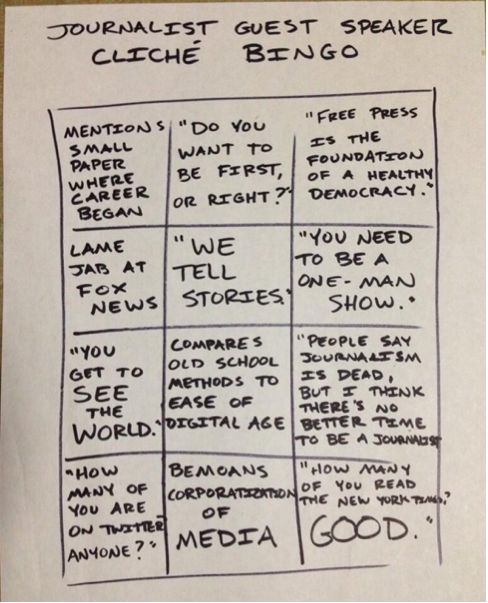 JOURNALIST GUEST SPEAKER
CLICHÉ BINGO
MENTIONS
SMALL
PAPER
WHERE
CAREER
BEGAN
"DO YOU
WANT TO
BE FIRST,
OR RIGHT?"
"FREE PRESS
IS THE
FOUNDATION
OF A HEALTHY
DEMOCRACY."
LAME
JAB AT
FOX
NEWS
"WE
TELL
STORIES."
"YOU NEED
TO BE A
ONE-MAN
SHOW."
"YOU
GET TO
SEE
THE
WORLD."
COMPARES
OLD SCHOOL
METHODS TO
EASE OF
DIGITAL AGE
"PEOPLE SAY
JOURNALISM
IS DEAD,
BUT I THINK
THERE'S NO
BETTER TIME
TO BE A JOURNALIST
"HOW
MANY OF
YOU ARE
ON TWITTER
ANYONE?"
BEMOANS
CORPORATIZATION
OF
MEDIA
"HOW MANY
OF YOU READ
THE NEW YORK TIMES?
GOOD."